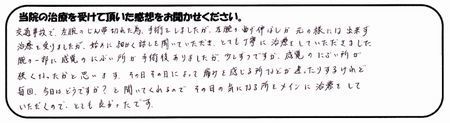 当院の治療を受けて頂いた感想をお聞かせください。
交通事故で、左腕のじん帯切れた為、手術をしましたが、左腕の曲げ伸ばしが元の様には出来ず
治療を受けましたが、始めに細かく話しを聞いていただき、とても丁寧に治療をしていただきました
腕の一部に感覚のにぶい所が手術後ありましたが、少しずつですが、感覚のにぶい所が
狭くなったかと思います。その日その日によって痛みを感じる所などが違ったりするけれど
毎回、今日はどうですか？と聞いてくれるので、その日の気になる所をメインに治療をして
いただくので、とても良かったです。